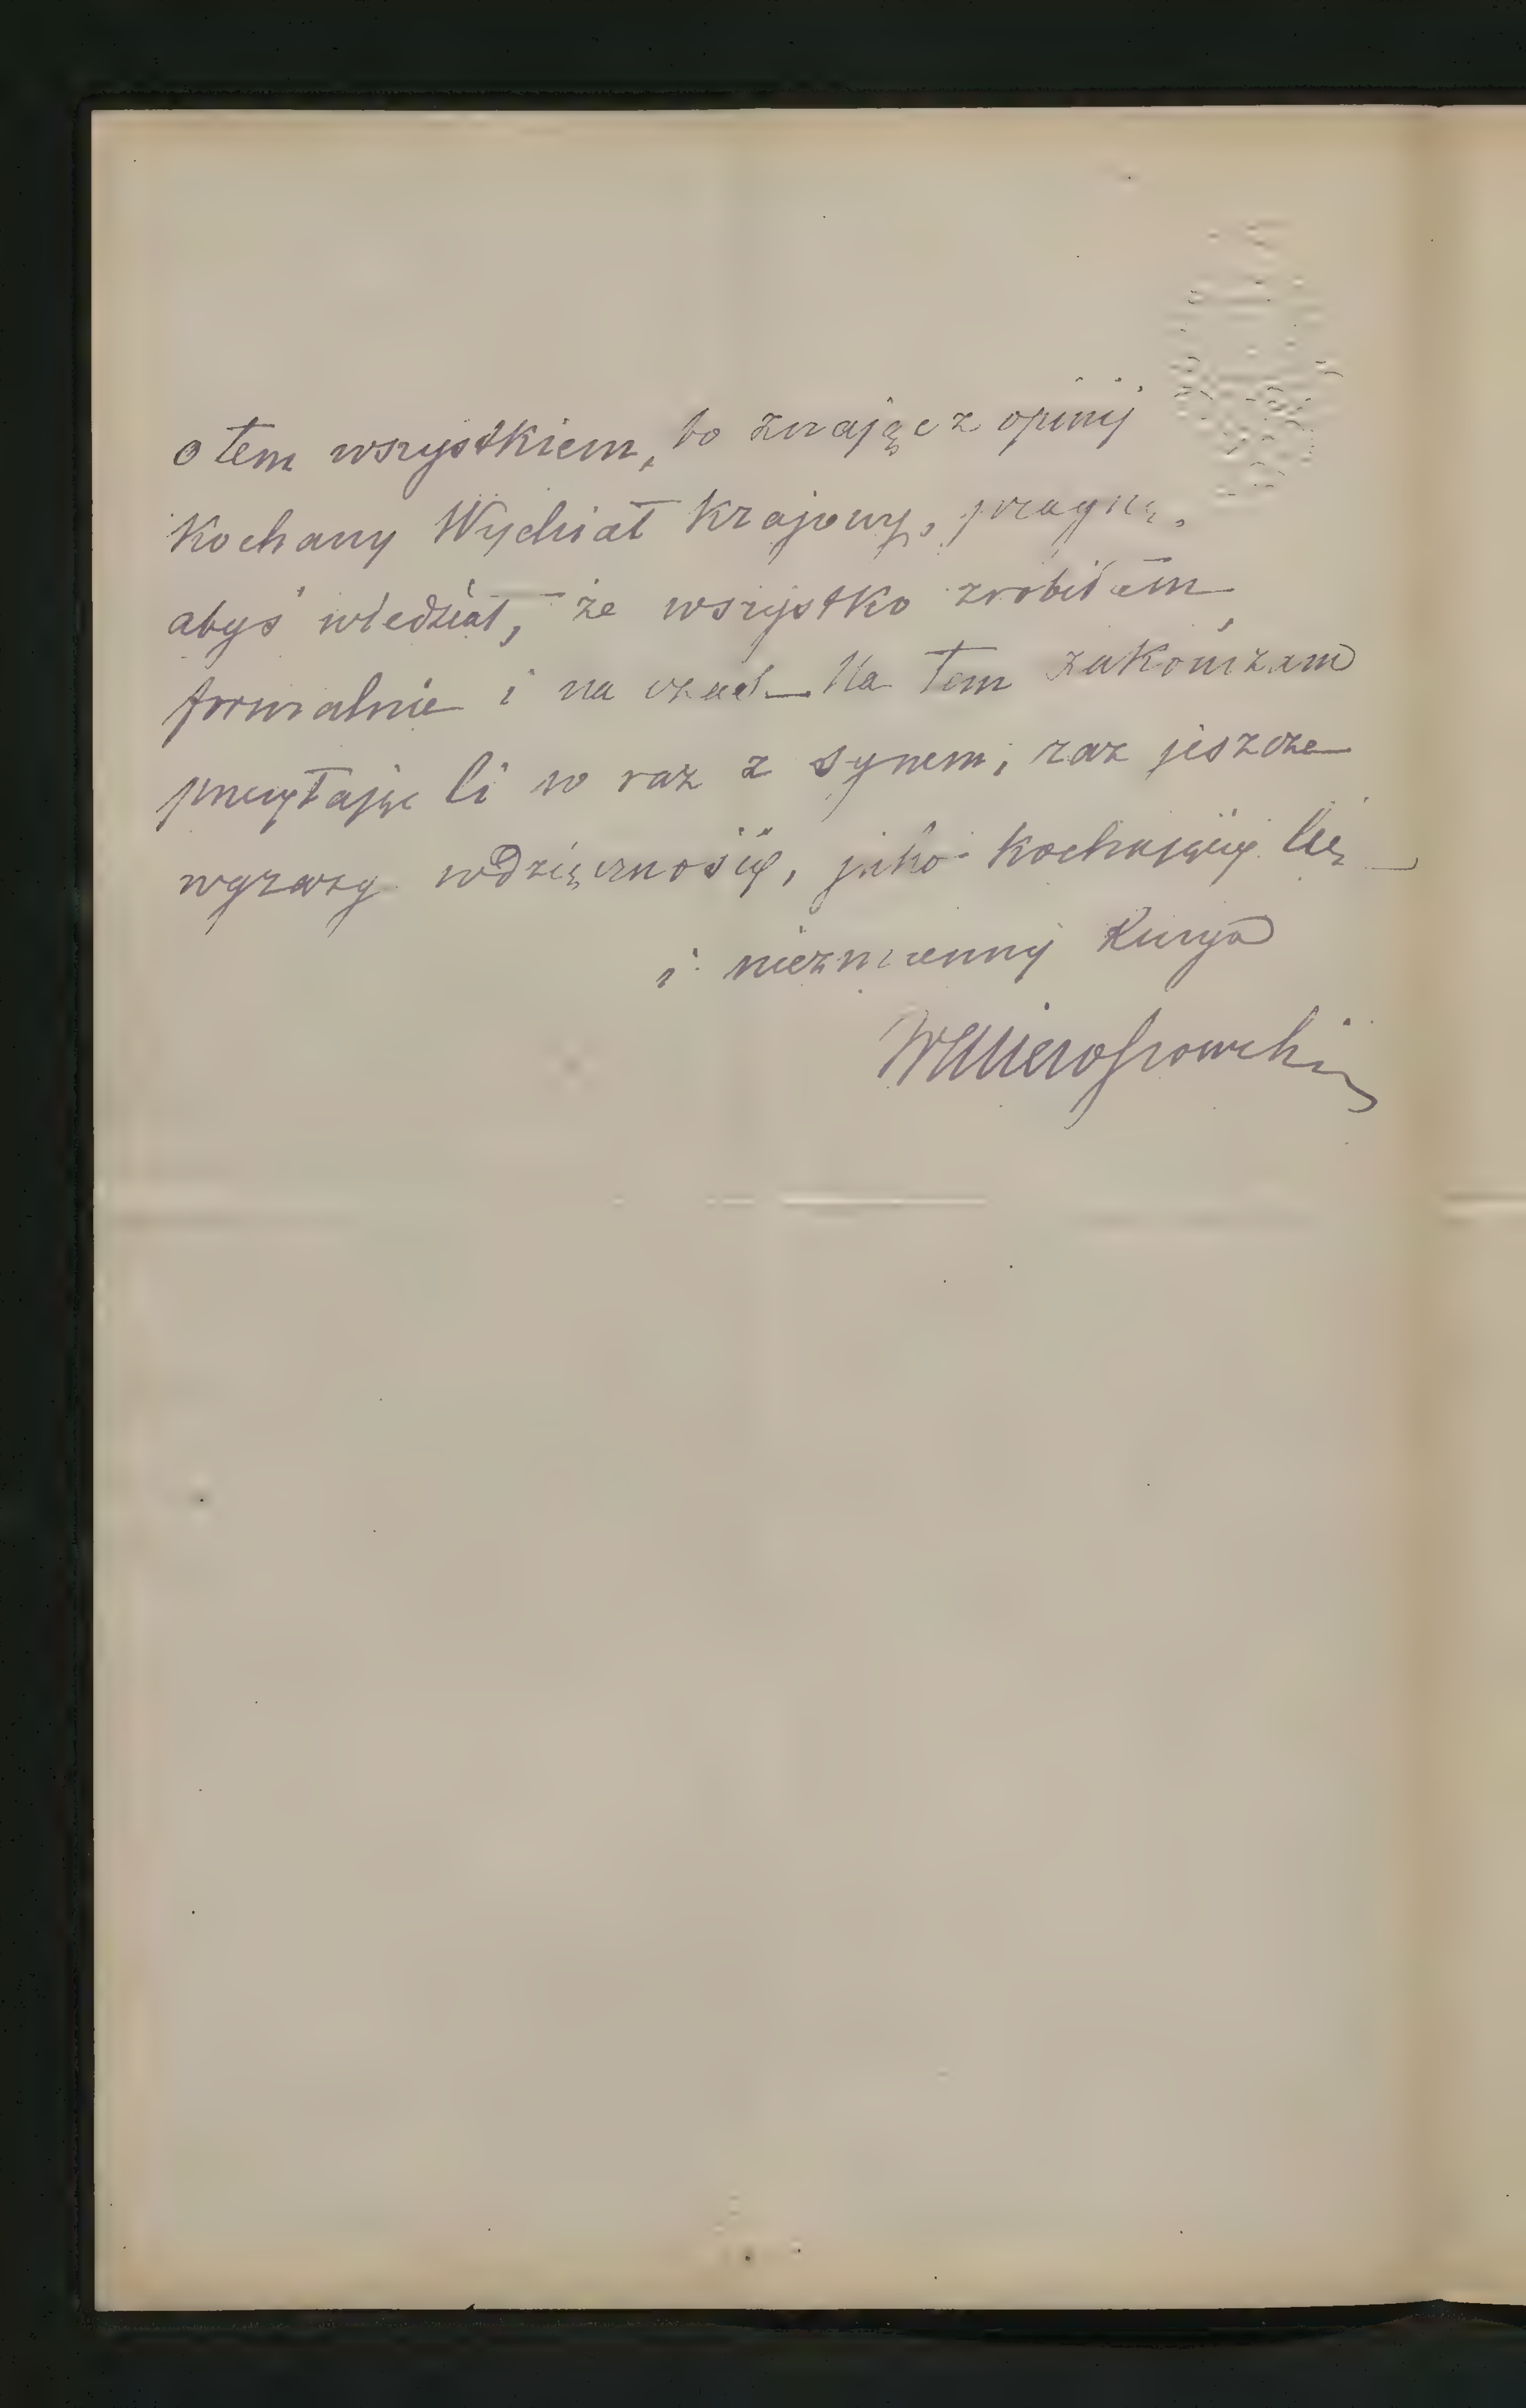 o tem wszystkiem, bo znając z opinij
Kochany Wydział Krajowy, pragnę,
abyś wiedział, że wszystko zrobiłem
formalnie i na czas — Na tem zakończam
przesyłając Ci w raz z synem, raz jeszcze
wyrazy wdzięczności, jako kochający Cię
i niezmienny Kuzyn
WMieroszowski